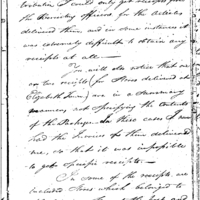 I could only get receipts from
the Recruiting officers for the articles
delivered them and in some instances it
was extremely difficult to obtain any
receipts at all.
You will also notice that
receipts (for Stores delivered at
Elizabeth Town) are in a Summary
manner, not Specifying the contents
of the Packages. In these cases I
had the Invoices for them delivered
me, so that it was impossible
to get specific receipts.
In some of the receipts are
included Stores which belonged to